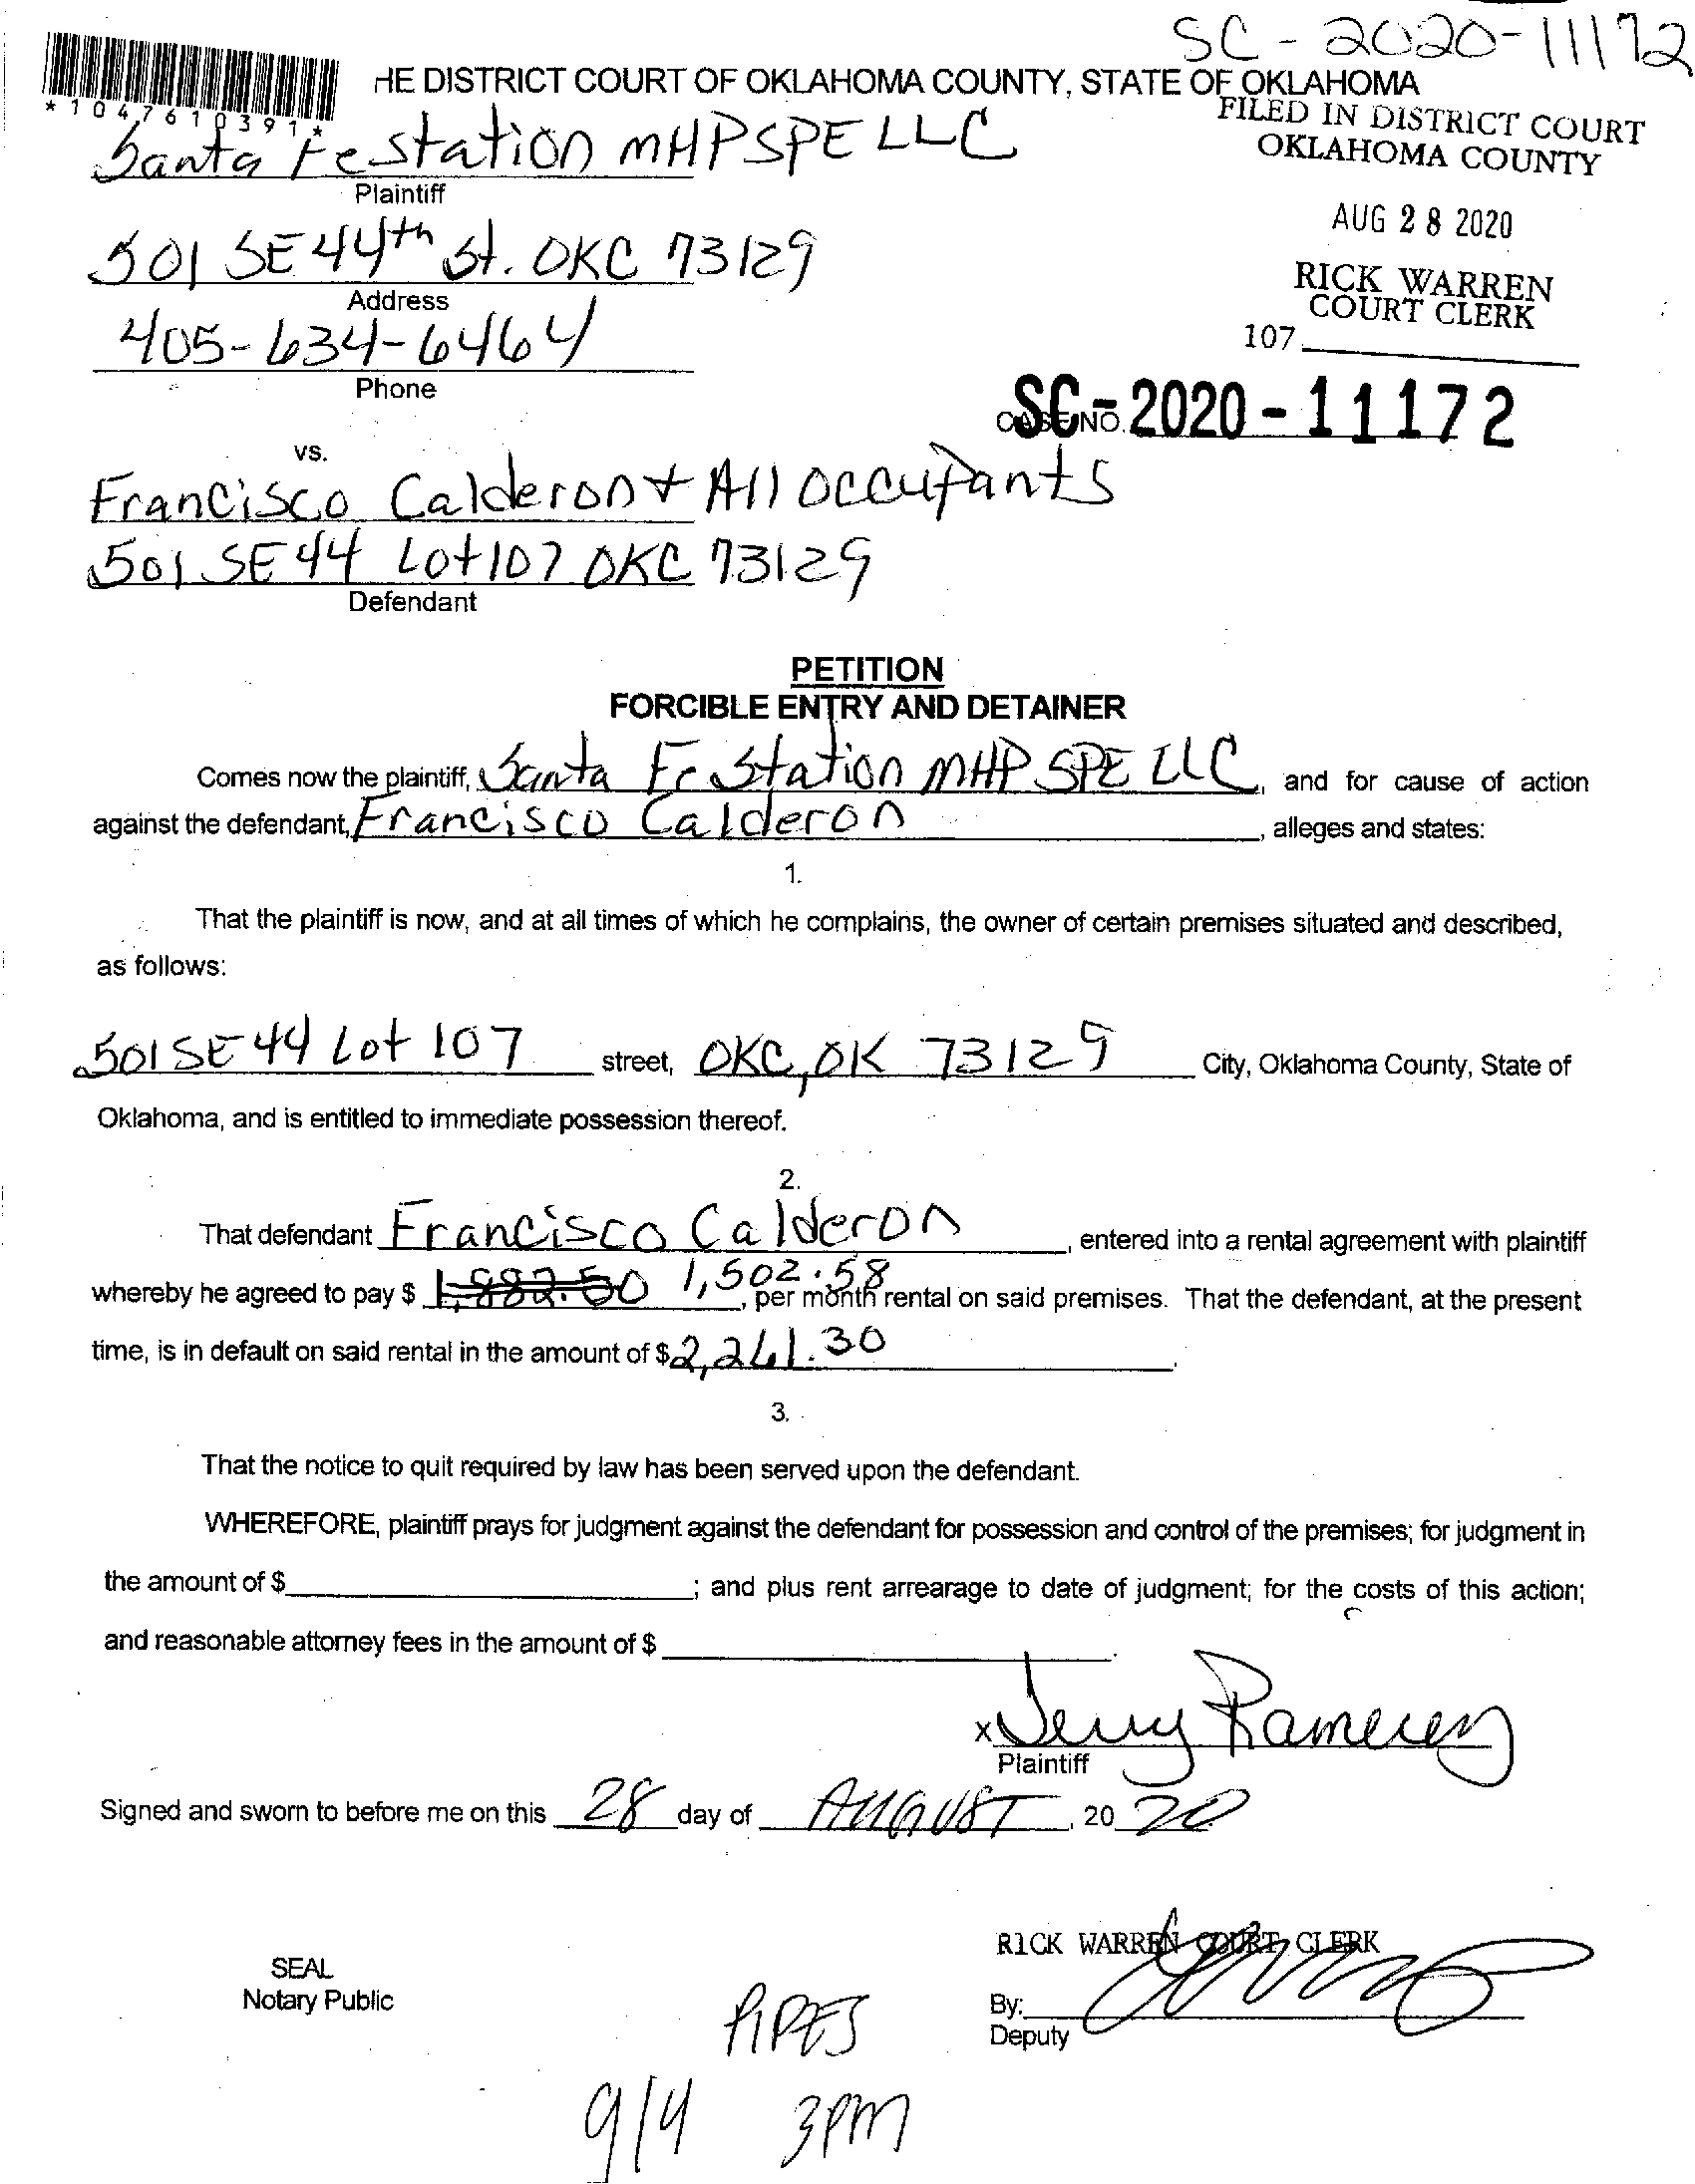 SC-2020-11172
HE DISTRICT COURT OF OKLAHOMA COUNTY, STATE OF OKLAHOMA
*1047610391*
FILED IN DISTRICT COURT
OKLAHOMA COUNTY
Santa Fe Station MHP SPE LLC
Plaintiff
AUG 28 2020
501 SE 44th St. OKC 73129
Address
RICK WARREN
COURT CLERK
405-634-6464
107
Phone
CASE NO. SC-2020-11172
vs.
Francisco Calderon + All occupants
501 SE 44 Lot 107 OKC 73129
Defendant
PETITION
FORCIBLE ENTRY AND DETAINER
Comes now the plaintiff, Santa Fe Station MHP SPE LLC, and for cause of action
against the defendant, Francisco Calderon, alleges and states:
1.
That the plaintiff is now, and at all times of which he complains, the owner of certain premises situated and described,
as follows:
501 SE 44 Lot 107 street, OKC, OK 73129 City, Oklahoma County, State of
Oklahoma, and is entitled to immediate possession thereof.
2.
That defendant Francisco Calderon, entered into a rental agreement with plaintiff
whereby he agreed to pay $ 1,882.50 1,502.58, per month rental on said premises. That the defendant, at the present
time, is in default on said rental in the amount of $2,261.30.
3.
That the notice to quit required by law has been served upon the defendant.
WHEREFORE, plaintiff prays for judgment against the defendant for possession and control of the premises; for judgment in
the amount of $ ; and plus rent arrearage to date of judgment; for the costs of this action;
and reasonable attorney fees in the amount of $ .
x Jerry Ramirez
Plaintiff
Signed and sworn to before me on this 28 day of AUGUST, 20 20
RICK WARREN COURT CLERK
SEAL
Notary Public
By:
Deputy
PIPES
9/4 3PM